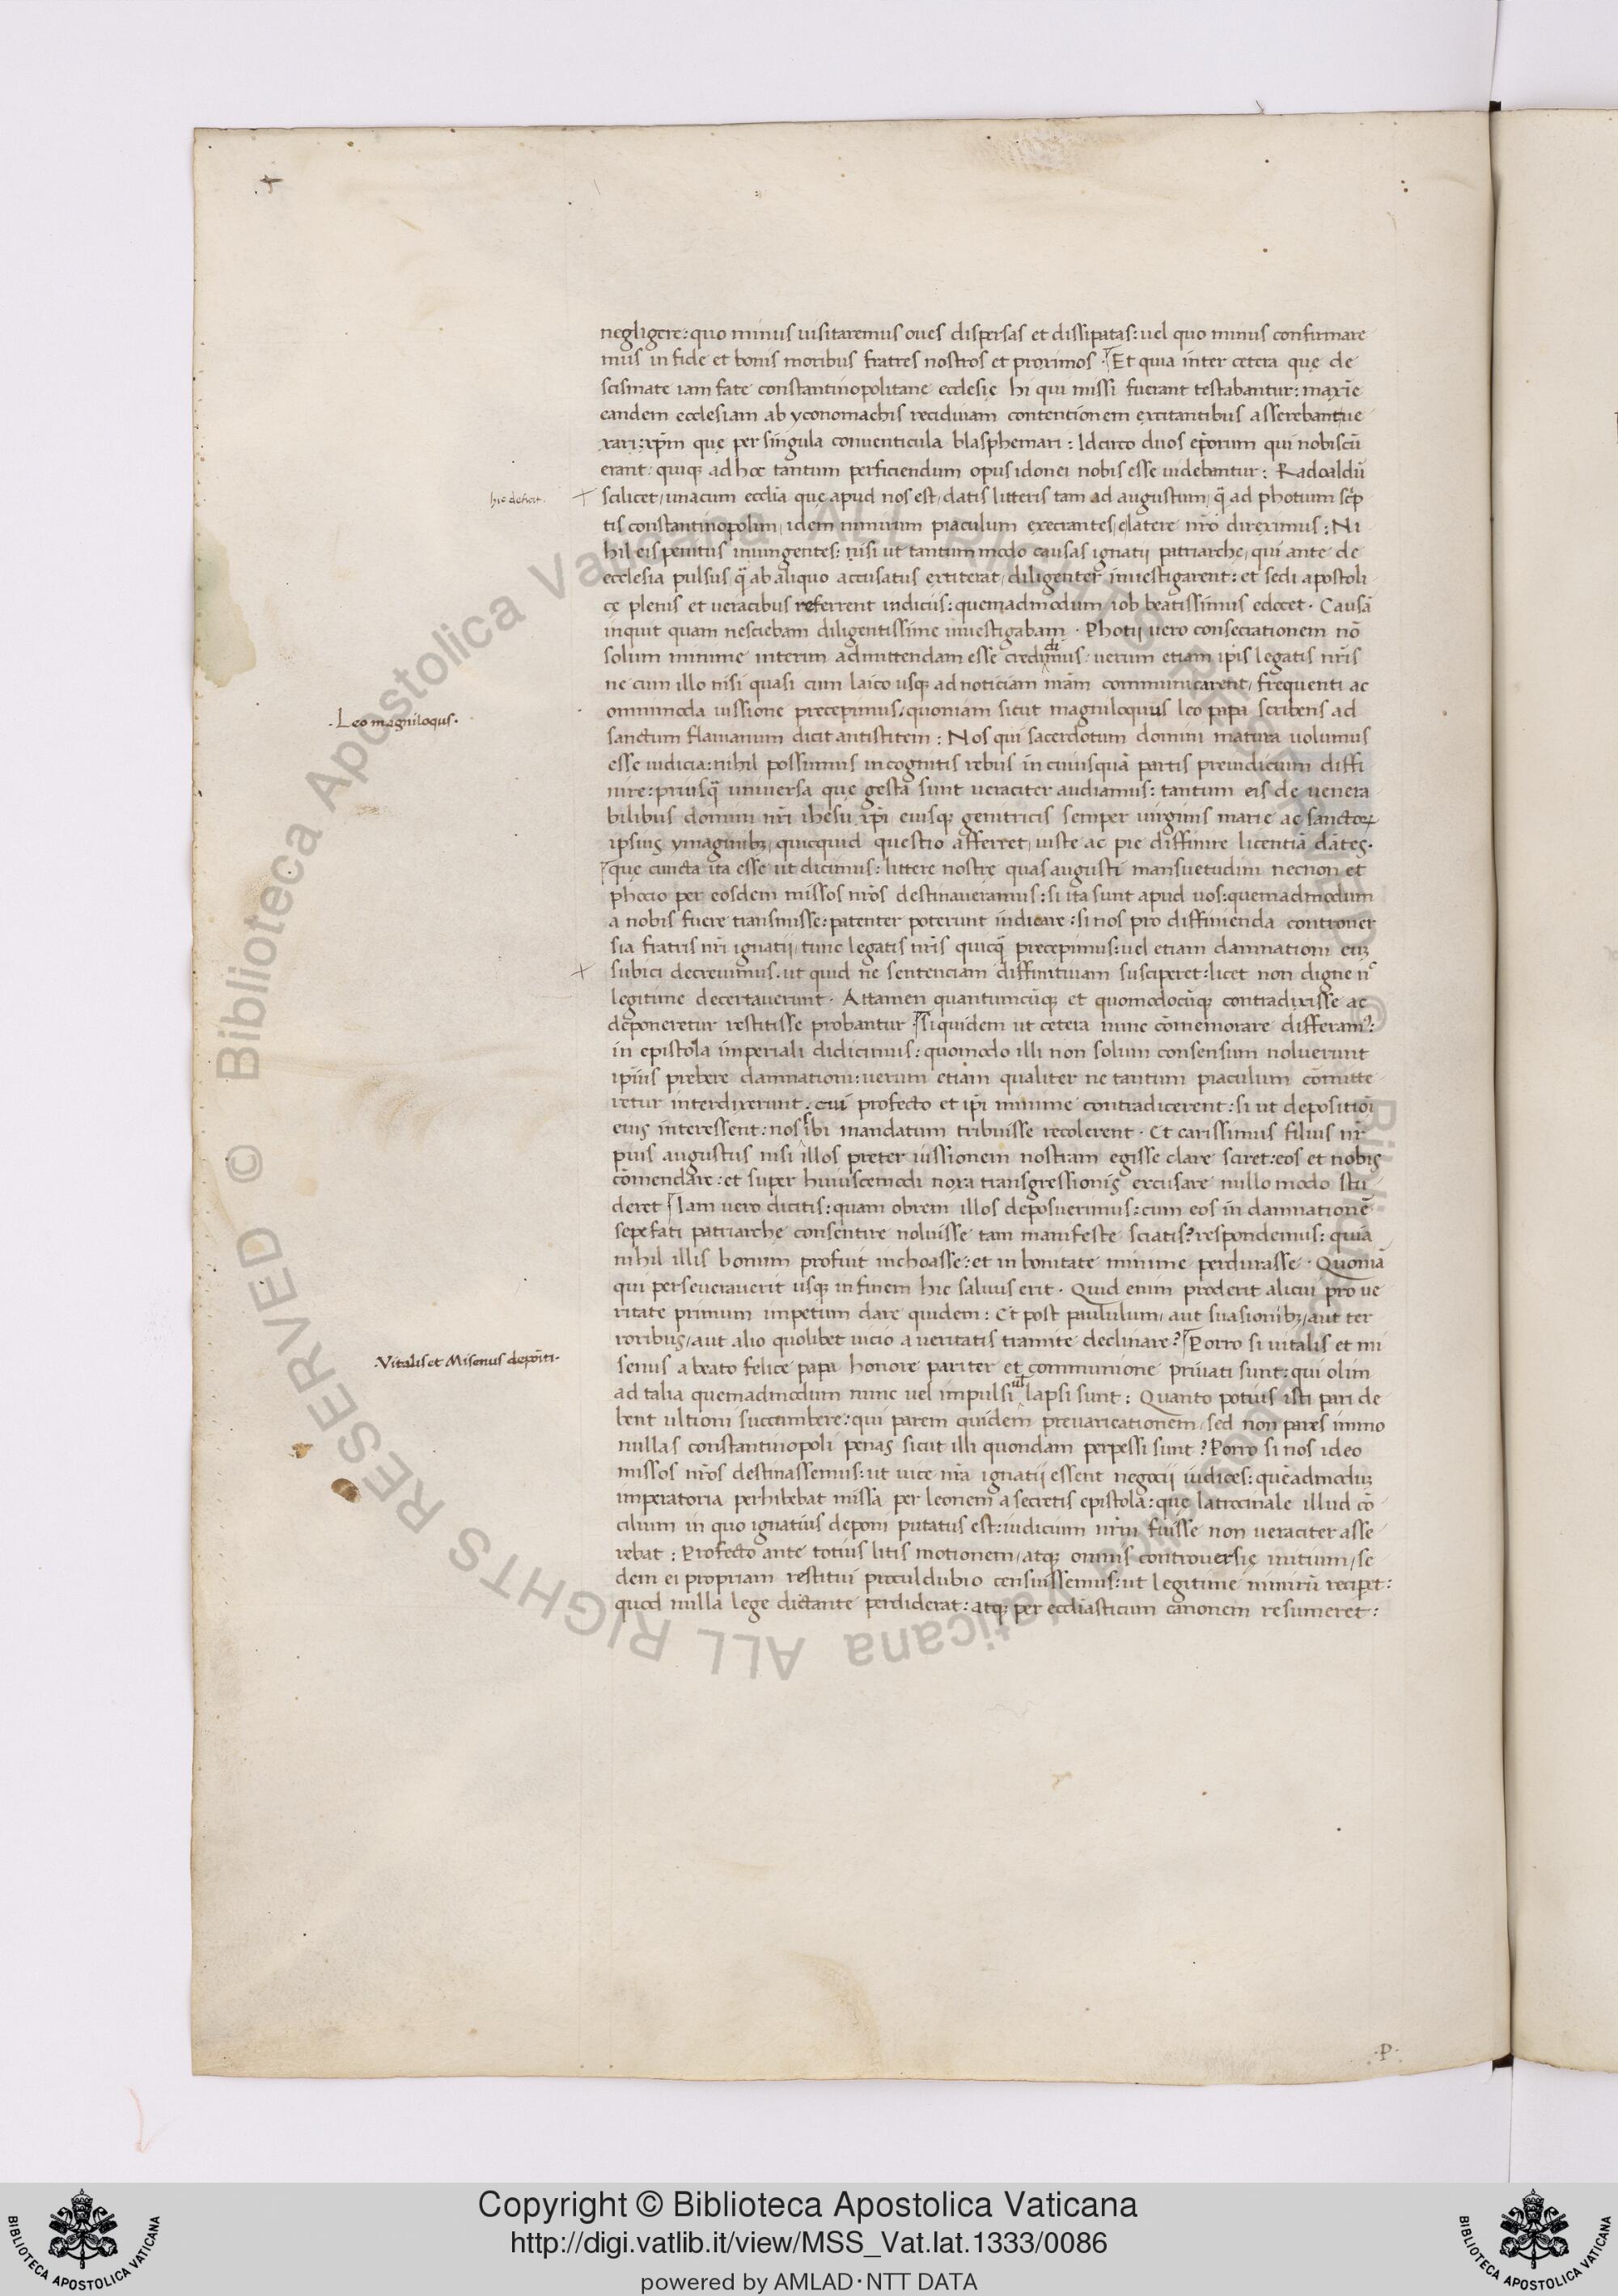 negligere: quo minus uisitaremus oues dispersas et dissipatas: uel quo minus confirmare
mus in fide et bonis moribus fratres nostros et proximos. Et quia inter cetera quę de
scismate iam fate constantinopolitane ecclesię hi qui missi fuerant testabantur: maxīe
eandem ecclesiam ab yconomachis recidiuam contentionem excitantibus asserebant ue
xari: xp̄m que per singula conuenticula blasphemari: Idcirco duos ep̄orum qui nobiscū
erant: quiq; ad hoc tantum perficiendum opus idonei nobis esse uidebantur: Radoaldū
hic deficit.
scilicet, unacum eccl̄ia quę apud nos est, datis litteris tam ad augustum, q̄ ad photium sc̄p
tis constantinopolim, idem nimirum piaculum execrantes, elatere nr̄o direximus: Ni
hil eis penitus iniungentes: nisi ut tantummodo causas ignatij patriarchę, qui ante de
ecclesia pulsus, q̄ ab aliquo accusatus extiterat, diligenter inuestigarent: et sedi apostoli
cę plenis et ueracibus referrent indiciis: quemadmodum iob beatissimus edocet. Causā
inquit quam nesciebam diligentissime inuestigabam. Photij uero consecrationem nō
solum minime interim admittendam esse credidimus: uerum etiam ip̄is legatis nr̄is
ne cum illo nisi quasi cum laico usq; ad noticiam nr̄am communicarent, frequenti ac
omnimoda iussione precepimus: quoniam sicut magniloquus leo papa scribens ad
.Leo magniloqus.
sanctum flauianum dicit antistitem: Nos qui sacerdotum domini matura uolumus
esse iudicia: nihil possumus incognitis rebus in cuiusquā partis preiudicium diffi
nire: priusq̄ uniuersa quę gesta sunt ueraciter audiamus: tantum eis de uenera
bilibus domini nr̄i ihesu xp̄i eiusq; genitricis semper uirginis marię ac sanctoꝝ
ipsius ymaginibꝫ, quicquid questio afferret, iuste ac pie diffinire licentiā dātes.
quę cuncta ita esse ut dicimus: litterę nostrę quas augusti mansuetudini necnon et
phocio per eosdem missos nr̄os destinaueramus: si ita sunt apud uos: quemadmodum
a nobis fuere transmisse: patenter poterunt indicare: si nos pro diffinienda controuer
sia fratris nr̄i ignatij, tunc legatis nr̄is quicq̄ precepimus: uel etiam damnationi eiꝰ
subici decreuimus. ut quid ne sentenciam diffinitiuam susciperet: licet non digne nc
legitime decertauerunt. Attamen quantumcūq; et quomodocūq; contradixisse ac
deponeretur restitisse probantur. Siquidem ut cetera nunc cōmemorare differamꝰ:
in epistola imperiali didicimus: quomodo illi non solum consensum noluerunt
ip̄ius prebere damnationi: uerum etiam qualiter ne tantum piaculum cōmitte
retur interdixerunt. cui profecto et ip̄i minime contradicerent: si ut depositiōi
eius interessent: nos sibi mandatum tribuisse recolerent. Et carissimus filius nr̄
pius augustus nisi illos preter iussionem nostram egisse clare sciret: eos et nobis
cōmendare: et super huiuscemodi noxa transgressionis excusare nullo modo stu
deret Iam uero dicitis: quam obrem illos deposuerimus: cum eos in damnationē
sepefati patriarche consentire noluisse tam manifeste sciatis? respondemus: quia
nihil illis bonum profuit inchoasse: et in bonitate minime perdurasse. Quoniā
qui perseuerauerit usq; in finem hic saluus erit. Quid enim proderit alicui pro ue
ritate primum impetum dare quidem: Et post paululum, aut suasionibꝫ, aut ter
roribus, aut alio quolibet uicio a ueritatis tramite declinare? Porro si uitalis et mi
.Vitalis et Misenus depositi.
senus a beato felice papa honore pariter et communione priuati sunt: qui olim
ad talia quemadmodum nunc uel impulsi ul lapsi sunt: Quanto potius isti pari de
bent ultioni succumbere: qui parem quidem preuaricationem, sed non pares immo
nullas constantinopoli penas sicut illi quondam perpessi sunt? Porro si nos ideo
missos nr̄os destinassemus: ut uice nr̄a ignatij essent negocij iudices: quēadmoduꝫ
imperatoria perhibebat missa per leonem a secretis epistola: quę latrocinale illud cō
cilium in quo ignatius deponi putatus est: iudicium nr̄m fuisse non ueraciter asse
rebat: Profecto ante totius litis motionem, atq; omnis controuersię initium, se
dem ei propriam restitui proculdubio censuissemus: ut legitime nimirū recipet:
quod nulla lege dictante perdiderat: atq; per eccl̄iasticum canonem resumeret:
.P.
Copyright © Biblioteca Apostolica Vaticana
http://digi.vatlib.it/view/MSS_Vat.lat.1333/0086
powered by AMLAD·NTT DATA
BIBLIOTECA APOSTOLICA VATICANA
BIBLIOTECA APOSTOLICA VATICANA
© Biblioteca Apostolica Vaticana ALL RIGHTS RESERVED © Biblioteca Apostolica Vaticana ALL RIGHTS RESERVED